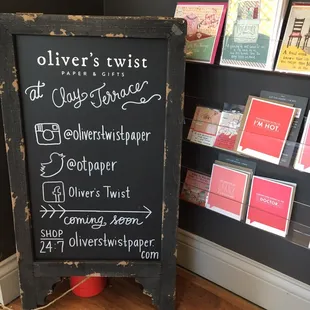 oliver's twist
PAPER & GIFTS
at Clay Terrace
@oliverstwistpaper
@otpaper
Oliver's Twist
coming soon
SHOP
24·7
oliverstwistpaper
.com
I'M NOT.
DOCTOR